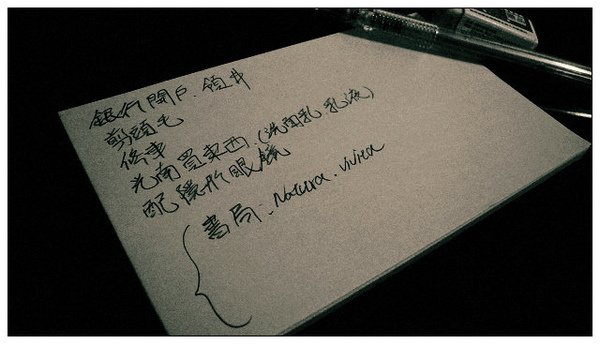 銀行開戶.領$
剪頭毛
修車
光南買東西.(洗面乳 乳液)
配隱形眼鏡
書局: Natura. vivrea